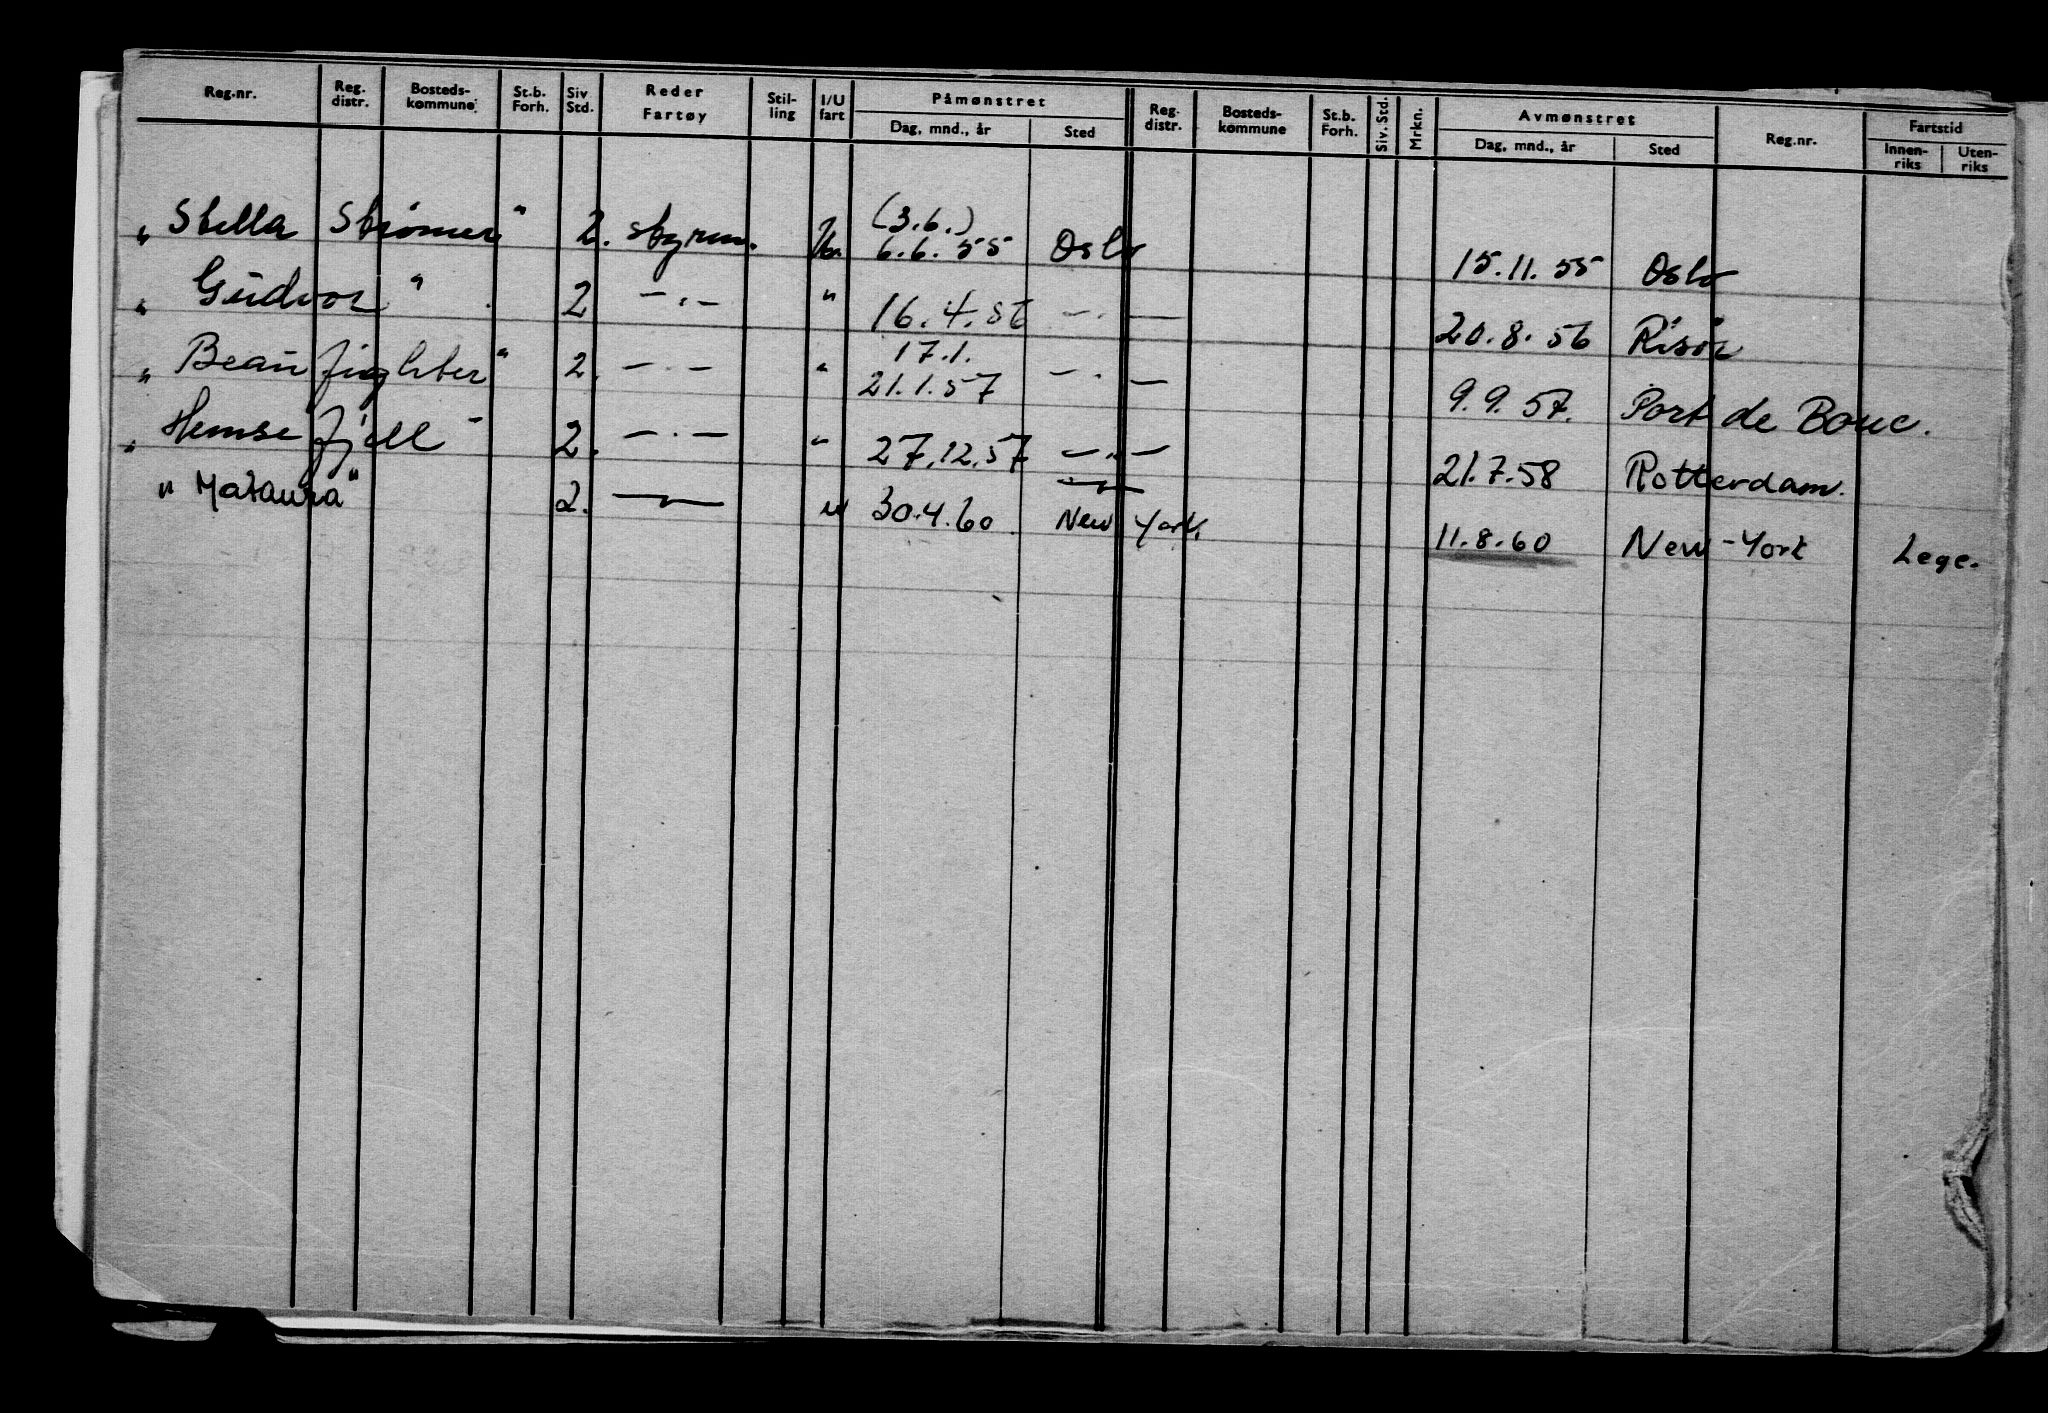 Reg.nr. Reg. distr. Bosteds-kommune St.b. Forh. Siv Std. Reder Fartøy Stil-ling I/U fart Påmønstret Dag, mnd., år Sted Reg. distr. Bosteds-kommune St.b. Forh. Siv. Std. Mrkn. Avmønstret Dag, mnd., år Sted Reg.nr. Fartstid Innen-riks Uten-riks
(3.6.)
„Stella Strømer" 2. styrm. 6.6.55 Oslo 15.11.55 Oslo
„Gudvor" 2 —.— " 16.4.56 —.— 20.8.56 Risør
17.1.
„Beaufighter" 2. —.— " 21.1.57 —.— 9.9.57. Port de Bouc.
„Hemsefjell" 2. —.— " 27.12.57 —.— 21.7.58 Rotterdam.
"Mataura" 2. — " 30.4.60 New York. 11.8.60 New-York Lege.